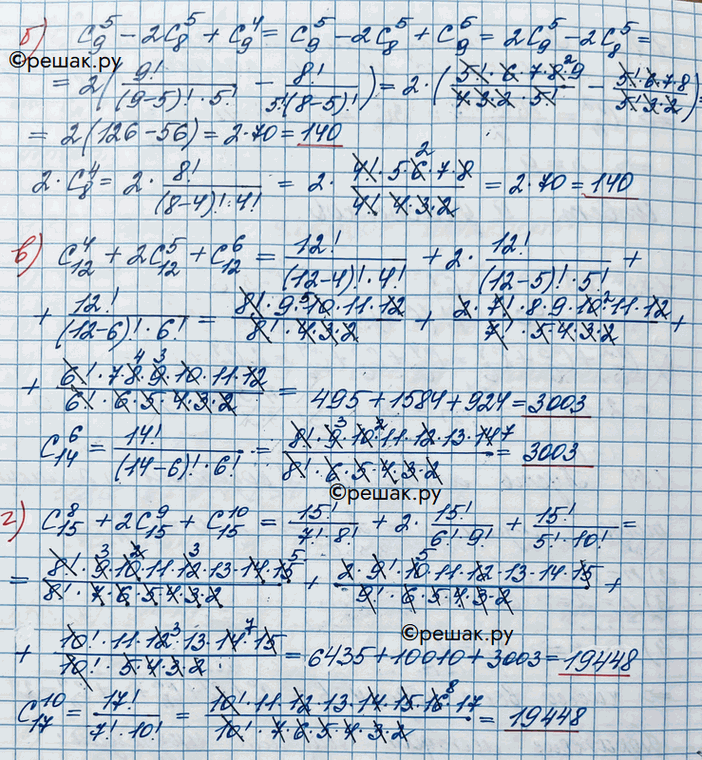 б) C₉⁵ − 2C₈⁵ + C₉⁴ = C₉⁵ − 2C₈⁵ + C₉⁵ = 2C₉⁵ − 2C₈⁵ =
©решак.ру
= 2(9!/((9−5)!·5!) − 8!/(5!(8−5)!)) = 2·(5!·6·7·8·9/(4·3·2·5!) − 5!·6·7·8/(5!·3·2)) =
= 2(126−56) = 2·70 = 140
2·C₈⁴ = 2·8!/((8−4)!·4!) = 2·4!·5·6·7·8/(4!·4·3·2) = 2·70 = 140
в) C₁₂⁴ + 2C₁₂⁵ + C₁₂⁶ = 12!/((12−4)!·4!) + 2·12!/((12−5)!·5!) +
+ 12!/((12−6)!·6!) = 8!·9·10·11·12/(8!·4·3·2) + 2·7!·8·9·10·11·12/(7!·5·4·3·2) +
+ 6!·7·8·9·10·11·12/(6!·6·5·4·3·2) = 495+1584+924 = 3003
C₁₄⁶ = 14!/((14−6)!·6!) = 8!·9·10·11·12·13·14/(8!·6·5·4·3·2) = 3003
©решак.ру
г) C₁₅⁸ + 2C₁₅⁹ + C₁₅¹⁰ = 15!/(7!·8!) + 2·15!/(6!·9!) + 15!/(5!·10!) =
= 8!·9·10·11·12·13·14·15/(8!·7·6·5·4·3·2) + 2·9!·10·11·12·13·14·15/(9!·6·5·4·3·2) +
©решак.ру
+ 10!·11·12·13·14·15/(10!·5·4·3·2) = 6435+10010+3003 = 19448
C₁₇¹⁰ = 17!/(7!·10!) = 10!·11·12·13·14·15·16·17/(10!·7·6·5·4·3·2) = 19448